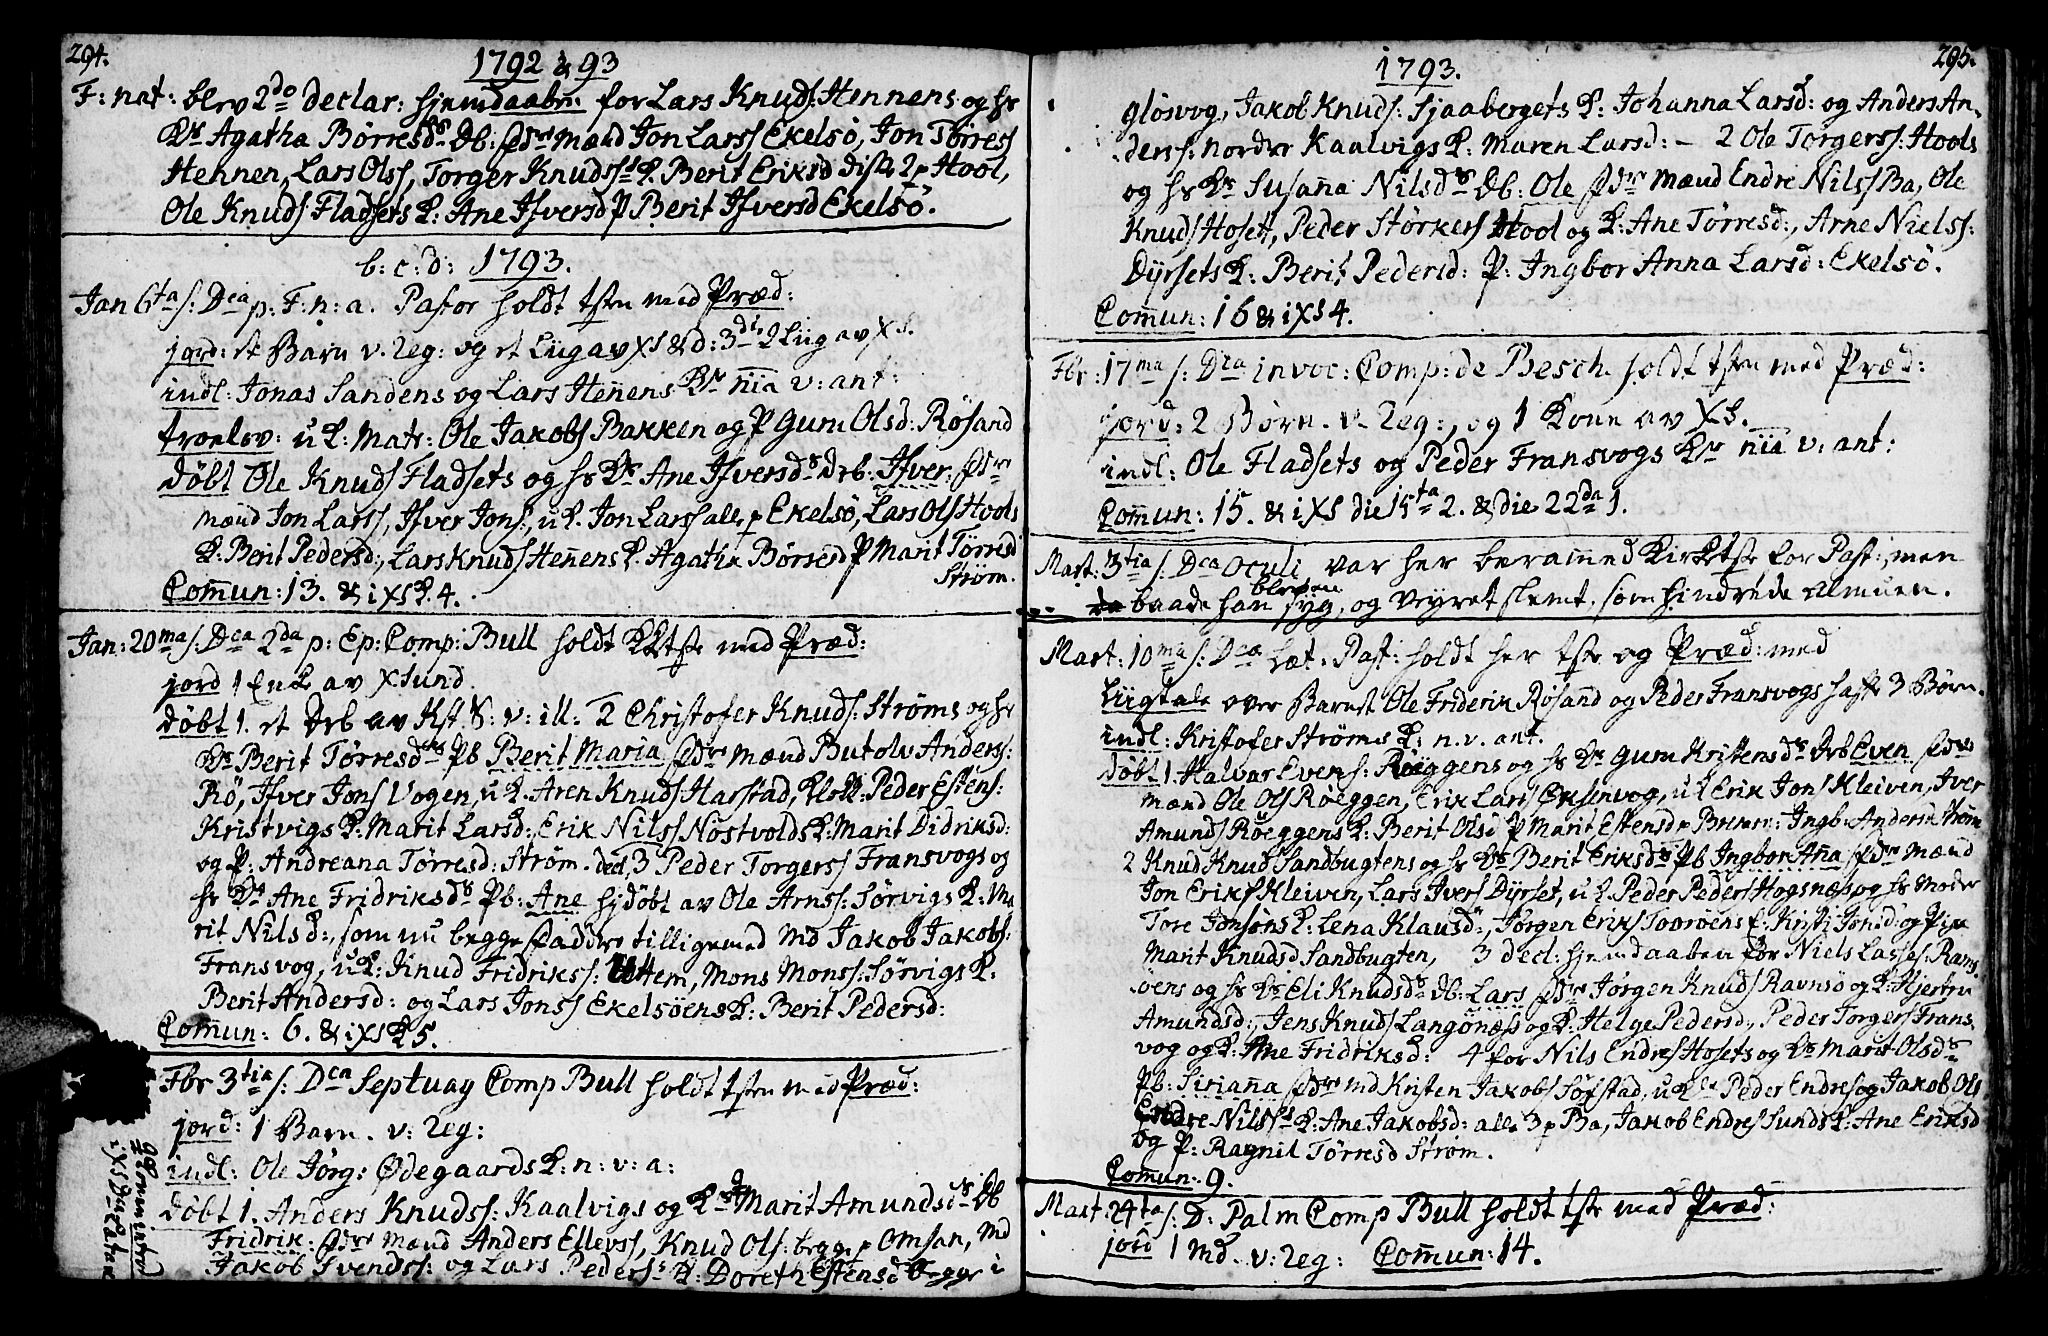 294.
1792 & 93
F: nat: blev 2do declar: hjemdaabn: for Lars Knuds Hennens og hs
Ks Agatha Børresds Db: fdre mænd Jon Larss Ekelsö, Jon Törress
Hennen, Lars Olss, Torger Knudss K. Berit Eriksd diste 2 p Hool,
Ole Knuds Fladsets K: Ane Ifversd P Berit Ifversd Ekelsö.
b: c: d: 1793.
Jan 6ta s: Dca p. F: n: a. Pastor holdt tsten med Præd:
jord: et Barn v. Leg: og et Liig av XS & d: 3die Liig av XS.
indl: Jonas Sandens og Lars Hennens Kr nia v: ant:
troelov: u K: Matr: Ole Jakobs Bakken og P Gum Olsd: Rösand
döbt Ole Knuds Fladsets og hs Ks Ane Ifversds Drb: Ifver: fdre
mænd Jon Larss, Ifver Jons:, u K. Jon Larss alle p Ekelsö, Lars Ols Hools
K: Berit Pedersd:, Lars Knuds Hennens K. Agatha Börresd P Marit Törresd
Ström.
Comun: 13. & i XS K. 4.
Jan: 20ma s: Dca 2da p: Ep: Comp: Bull holdt Ktste med Præd:
jord 1 Enk av XSund.
döbt 1. et Drb av Kst. S: v: ill: 2 Christofer Knuds: Ströms og hs
Ks Berit Törresds Pb Berit Maria fdre mænd Butolv Anders:
Rö, Ifver Jons Vogen, u K. Aren Knuds Harstad, Klok: Peder Estens:
Kristvigs K: Marit Larsd:, Erik Nilss Nostvolds K: Marit Didriksd:
og P: Andreana Törresd: Ström. decl, 3 Peder Torgerss Fransvogs og
hs Ks Ane Fridriksds Pb: Ane hjdöbt av Ole Arns: Sörvigs K: Ma
rit Nilsd:, som nu begge fadder tilligemed Md Jakob Jakobs:
Fransvog, u K: Knud Fridrikss: Uttem, Mons Monss: Sörvigs K:
Berit Andersd: og Lars Jonss Ekelsöens K: Berit Pedersd:
Comun: 6. & i XS K 5.
Fbr 3tia s: Dca Septuag Comp Bull holdt tsten med Præd:
jord: 1 Barn. v: Leg:
indl: Ole Jörg: Ödegaards K: n: v: a:
döbt 1. Anders Knudss: Kaalvigs og Ks Marit Amundsds Db
Fridrik: fdre mænd Anders Ellevss, Knud Ols: begge p Omsan, Md
Jakob Svendss: og Lars Pederss K: Doreth Estensd begge i
295.
1793.
Glösvog, Jakob Knuds: Sjaabergets K: Johanna Larsd: og Anders An-
derss: Norder Kaalvigs K: Maren Larsd: – 2 Ole Torgerss: Hools
og hs Ks Susana Nilsds Db: Ole fdre mænd Endre Nilss Ba, Ole
Knuds Hosett, Peder Störkers Hool og K: Ane Törresd:, Arne Nielss:
Dyrsets K: Berit Pedersd: P: Ingbor Anna Larsd: Ekelsö.
Comun: 16 & i XS 4.
Fbr: 17ma s: Dca invoc: Comp: de Besch. holdt tsten med Præd:
jord: 2 Börn. v. Leg:, og 1 Kone av XS.
indl: Ole Fladsets og Peder Fransvogs Kr nia v: ant:
Comun: 15. & i XS die 15ta 2. & die 22da 1.
Mart: 3tia s: Dca Oculi var her beramed Kirktste for Past:, men
baade han bleven syg, og Veyret slemt, som hindrede Almuen.
Mart: 10ma s: Dca Læt. Past: holdt her tste og Præd: med
Liigtale over Barnet Ole Friderik Rösand og Peder Fransvogs haste 3 Börn.
indl: Kristofer Ströms K: n. v. ant.
döbt 1. Halvar Evens: Röeggens og hs Ks Gum Kristensds Drb Even fdre
mænd Ole Ols Röeggen, Erik Lars Eksenvog, u K Erik Jons Kleiven, Iver
Amunds Röeggens K: Berit Olsd P Marit Estensd p Brem: Ingb: Andersd Ström
2 Knud Knuds Sandbugtens og hs Ks Berit Eriksds Pb Ingbor Ana fdre mænd
Jon Eriks Kleiven, Lars Ivers Dyrset, u K. Peder Peders Hogsnæs og hs Moder
Tore Jonsöns K: Lena Klausd:, Jörgen Eriks Tovröens K: Kirsti Jonsd: og Pige
Marit Knudsd Sandbugten, 3 decl: hjemdaaben for Niels Lasses: Rams-
öens og hs Ks Eli Knudsds Db: Lars fdre Jörgen Knuds Ravnsö og K: Hjertru
Amundsd:, Jens Knuds Langönæs og K: Helge Pedersd:, Peder Torgers Frans-
vog og K: Ane Fridriksd: 4 for Nils Endres Hosets og Ks Marit Olsds
Pb: Siriana fdre Md Kristen Jakobs Söfstad, u Kle Peder Endres og Jakob Ols
Endre Nilss K: Ane Jakobsd: alle 3 p Ba, Jakob Endres Sunds K: Ane Eriksd
og P: Ragnil Törresd Ström.
Comun: 9.
Mart: 24ta s: D: Palm Comp Bull holdt tste med Præd:
jord 1 Md. v: Leg: Comun: 14.